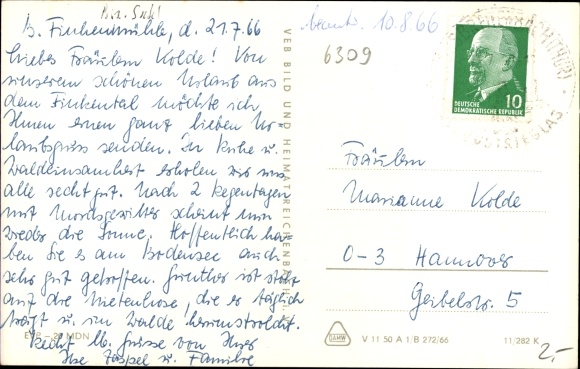 B. Finkenmühle, d. 21.7.66
Liebes Fräulein Kolde! Von
unserem schönen Urlaub aus
dem Finkental möchte ich
Ihnen einen ganz lieben Ur-
laubsgruss senden. In Ruhe u.
Waldeinsamkeit erholen wir uns
alle recht gut. Nach 2 Regentagen
mit Mordsgewitter scheint nun
wieder die Sonne. Hoffentlich ha-
ben Sie es am Bodensee auch
sehr gut getroffen. Günther ist stolz
auf die Nietenhose, die er täglich
trägt u. im Walde herumstrolcht.
Recht lb. Grüsse von Ihrer
Ilse u. Familie
EVP – 20 MDN
VEB BILD UND HEIMAT REICHENBACH I. V.
beantw. 10.8.66
6309
10
DEUTSCHE
DEMOKRATISCHE REPUBLIK
Fräulein
Marianne Kolde
0-3 Hannover
Geibelstr. 5
V 11 50 A 1 B 272/66
11/282 K
2,-